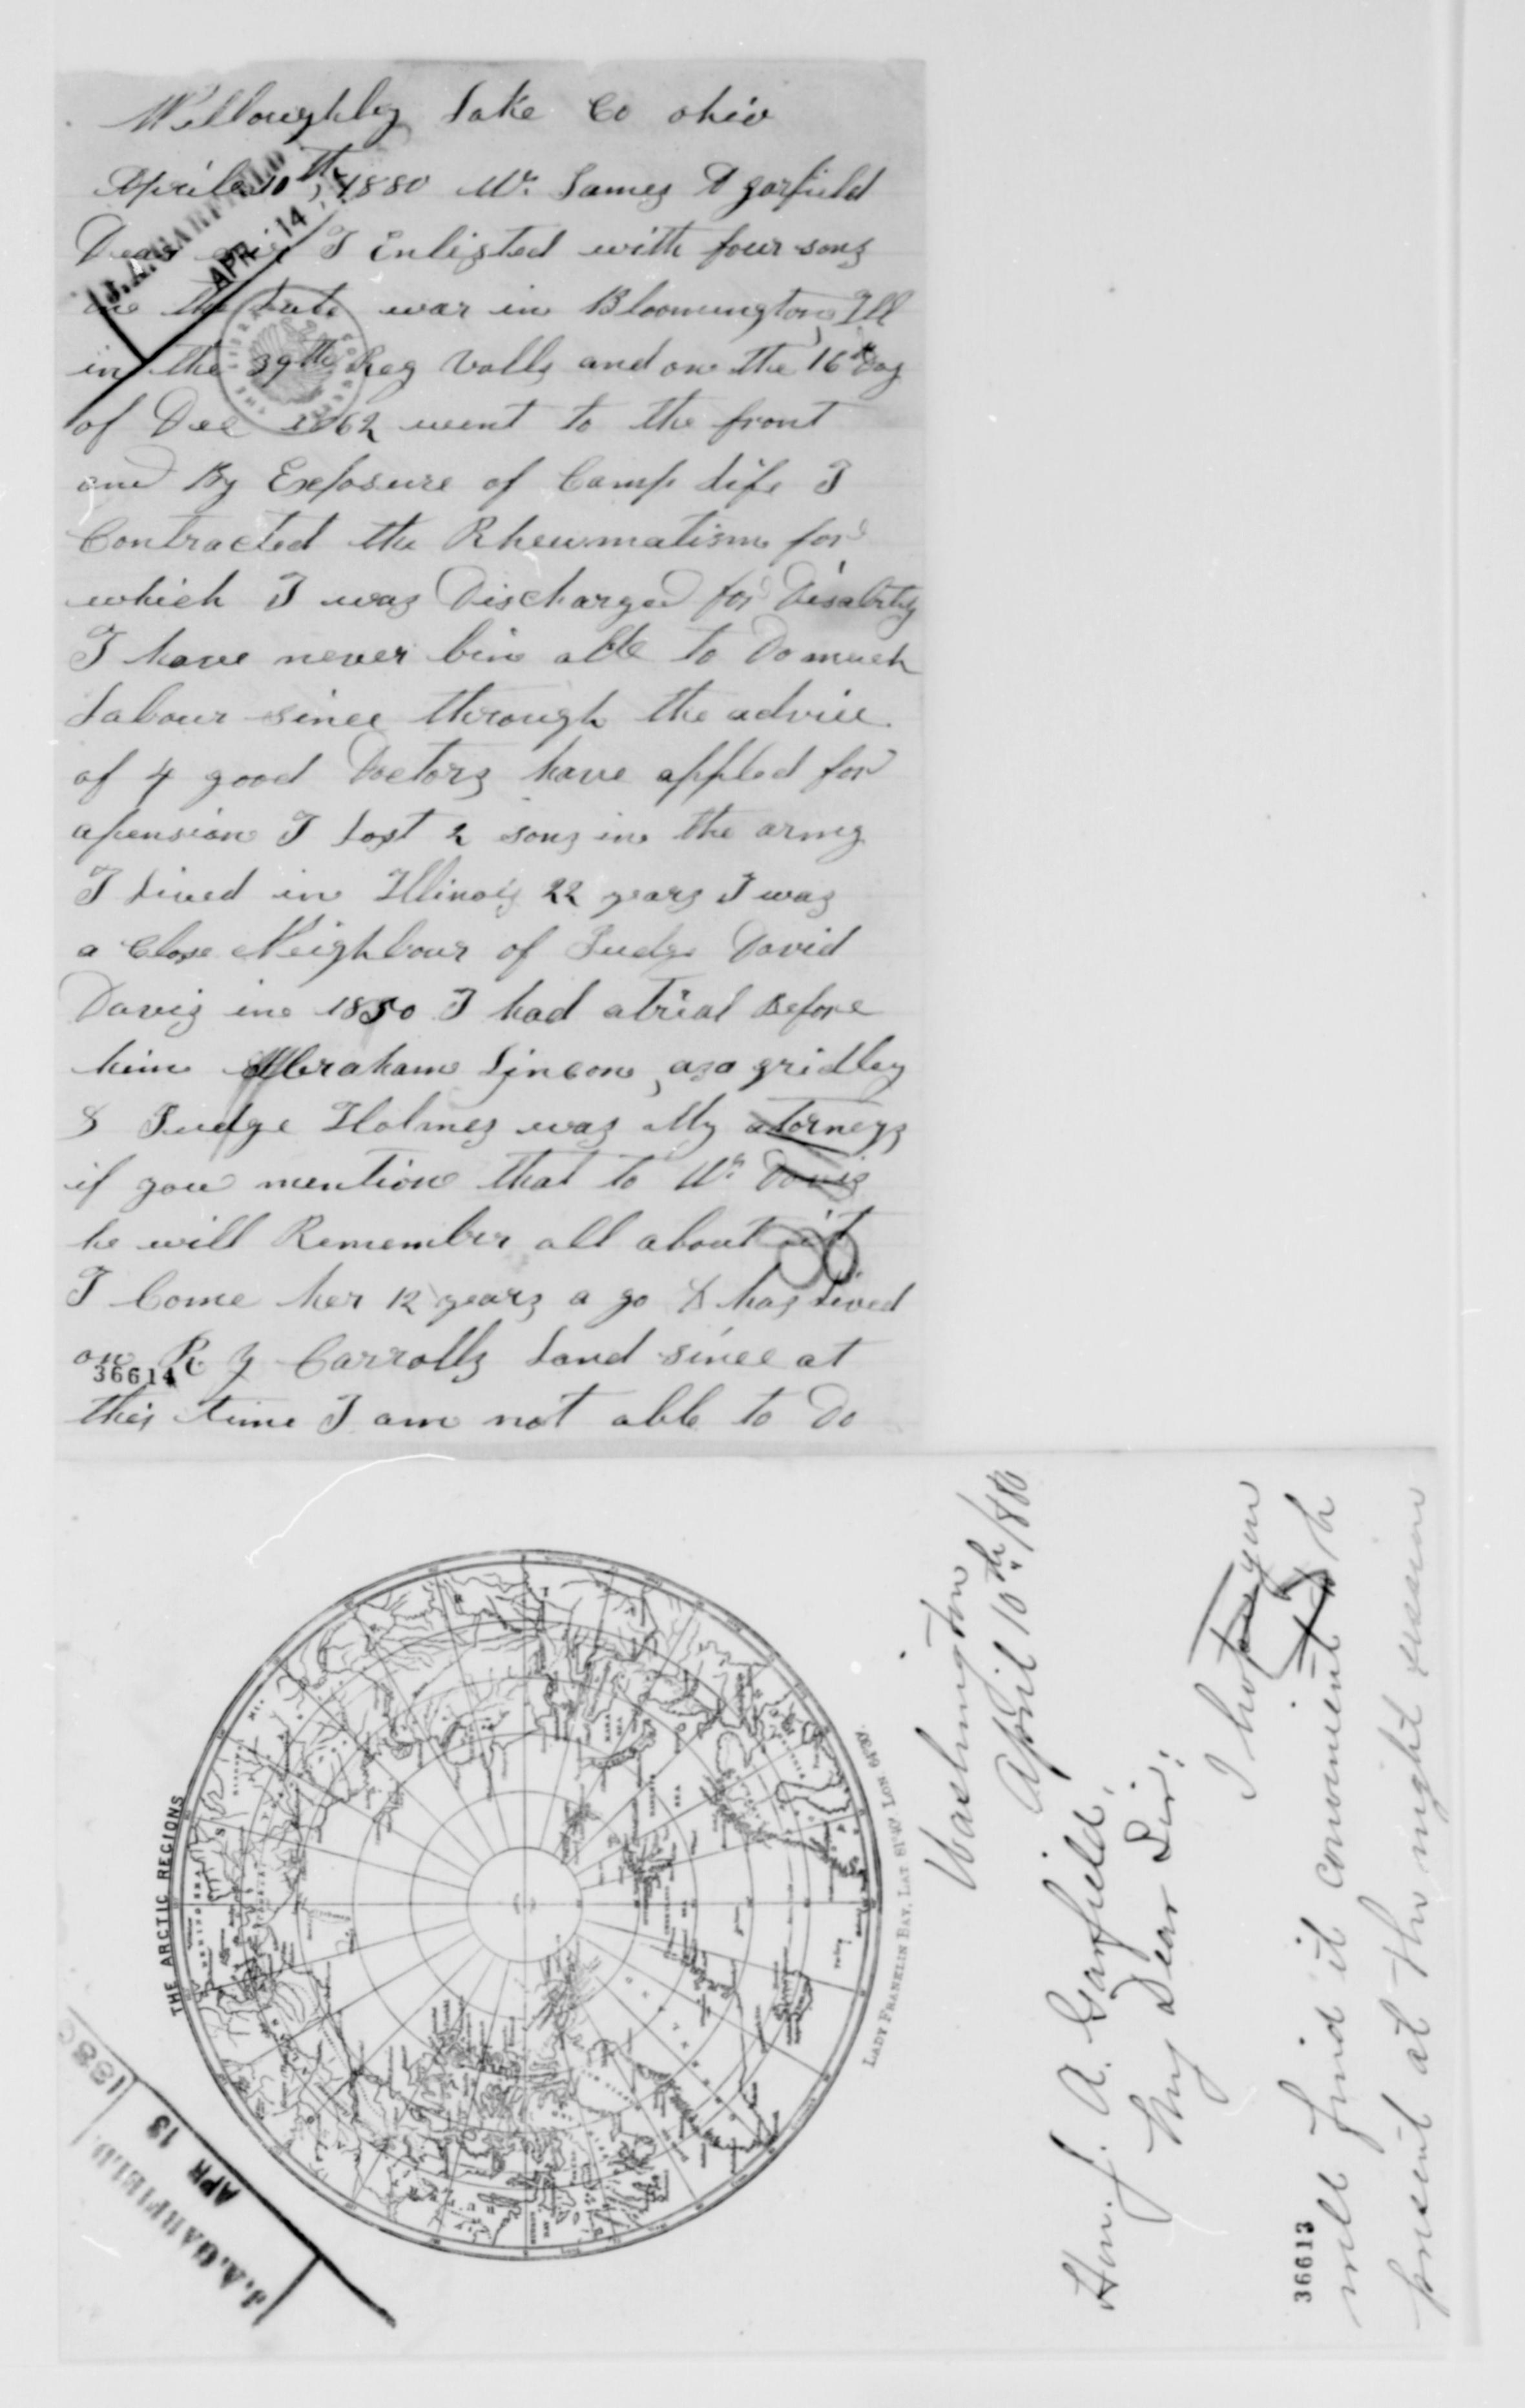 Willoughby Lake Co ohio
Aprile 10th, 1880 Mr. James A garfield
Dear sir I Enlisted with four sons
in the late war in Bloomington, Ill
in the 39th Reg Volls and on the 16th Day
of Dec 1862 went to the front
and By Exposure of Camp Life I
Contracted the Rheumatism for
which I was Discharged for Disabilty
I have never bin able to Do much
Labour since through the advice
of 4 good Doctors have appled for
apension I Lost 2 sons in the army
I Lived in Illinois 22 years I was
a Close Neighbour of Judge David
Davis in 1850 I had atrial Before
him Abraham Lincon, asa gridley
& Judge Holmes was My atorneys
if you mention that to Mr. Davis
he will Remember all about it
I Come her 12 years a go & has Lived
on R Y Carrolls Land since at
this time I am not able to Do
36614
J. A. GARFIELD
APR 14
THE ARCTIC REGIONS
LADY FRANKLIN BAY, LAT 81°40' LON 64°30'.
J. A. GARFIELD.
APR 13
1880
Washington
April 10th /880
Hon. J. A. Garfield,
My Dear Sir:
I hope you
will find it convenient to b
present at the night session
36613